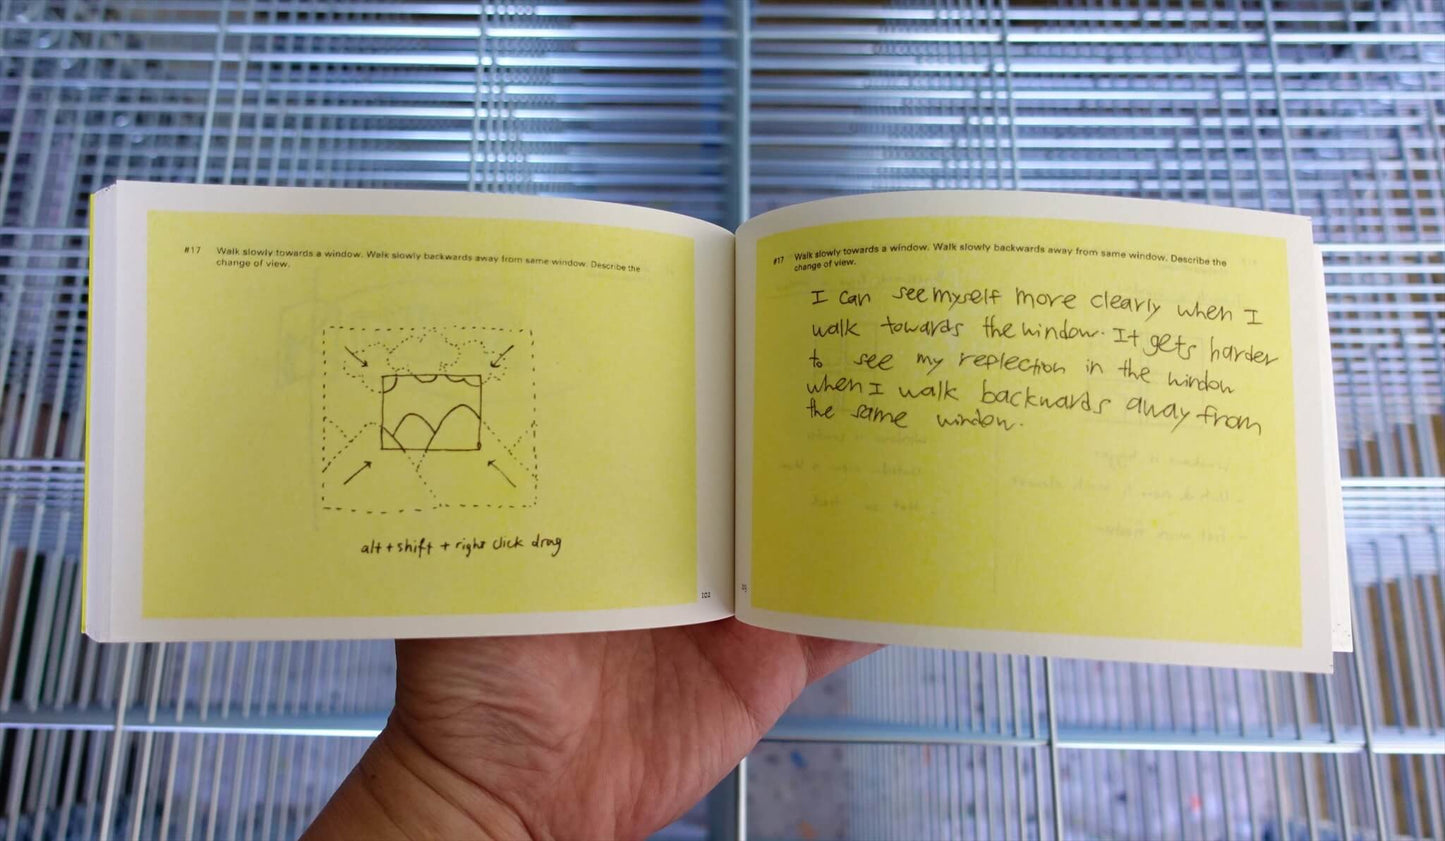 #17 Walk slowly towards a window. Walk slowly backwards away from same window. Describe the
change of view.
alt + shift + right click drag
102
#17 Walk slowly towards a window. Walk slowly backwards away from same window. Describe the
change of view.
I can see myself more clearly when I
walk towards the window. It gets harder
to see my replection in the window
when I walk backwards away from
the same window.